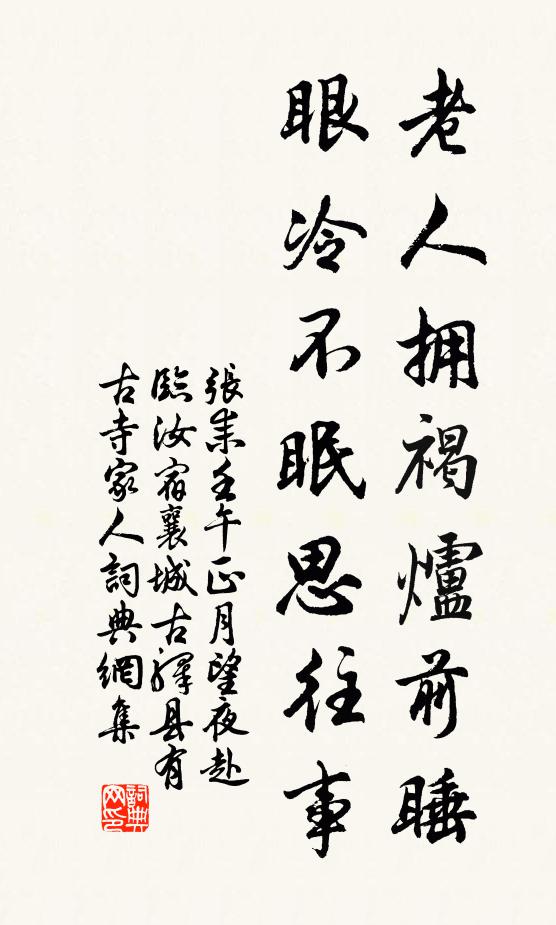 老人拥褐爐前睡
眼冷不眠思往事
張耒壬午正月望夜赴
臨汝宿襄城古驛县有
古寺家人詞典網集
詞典
网印